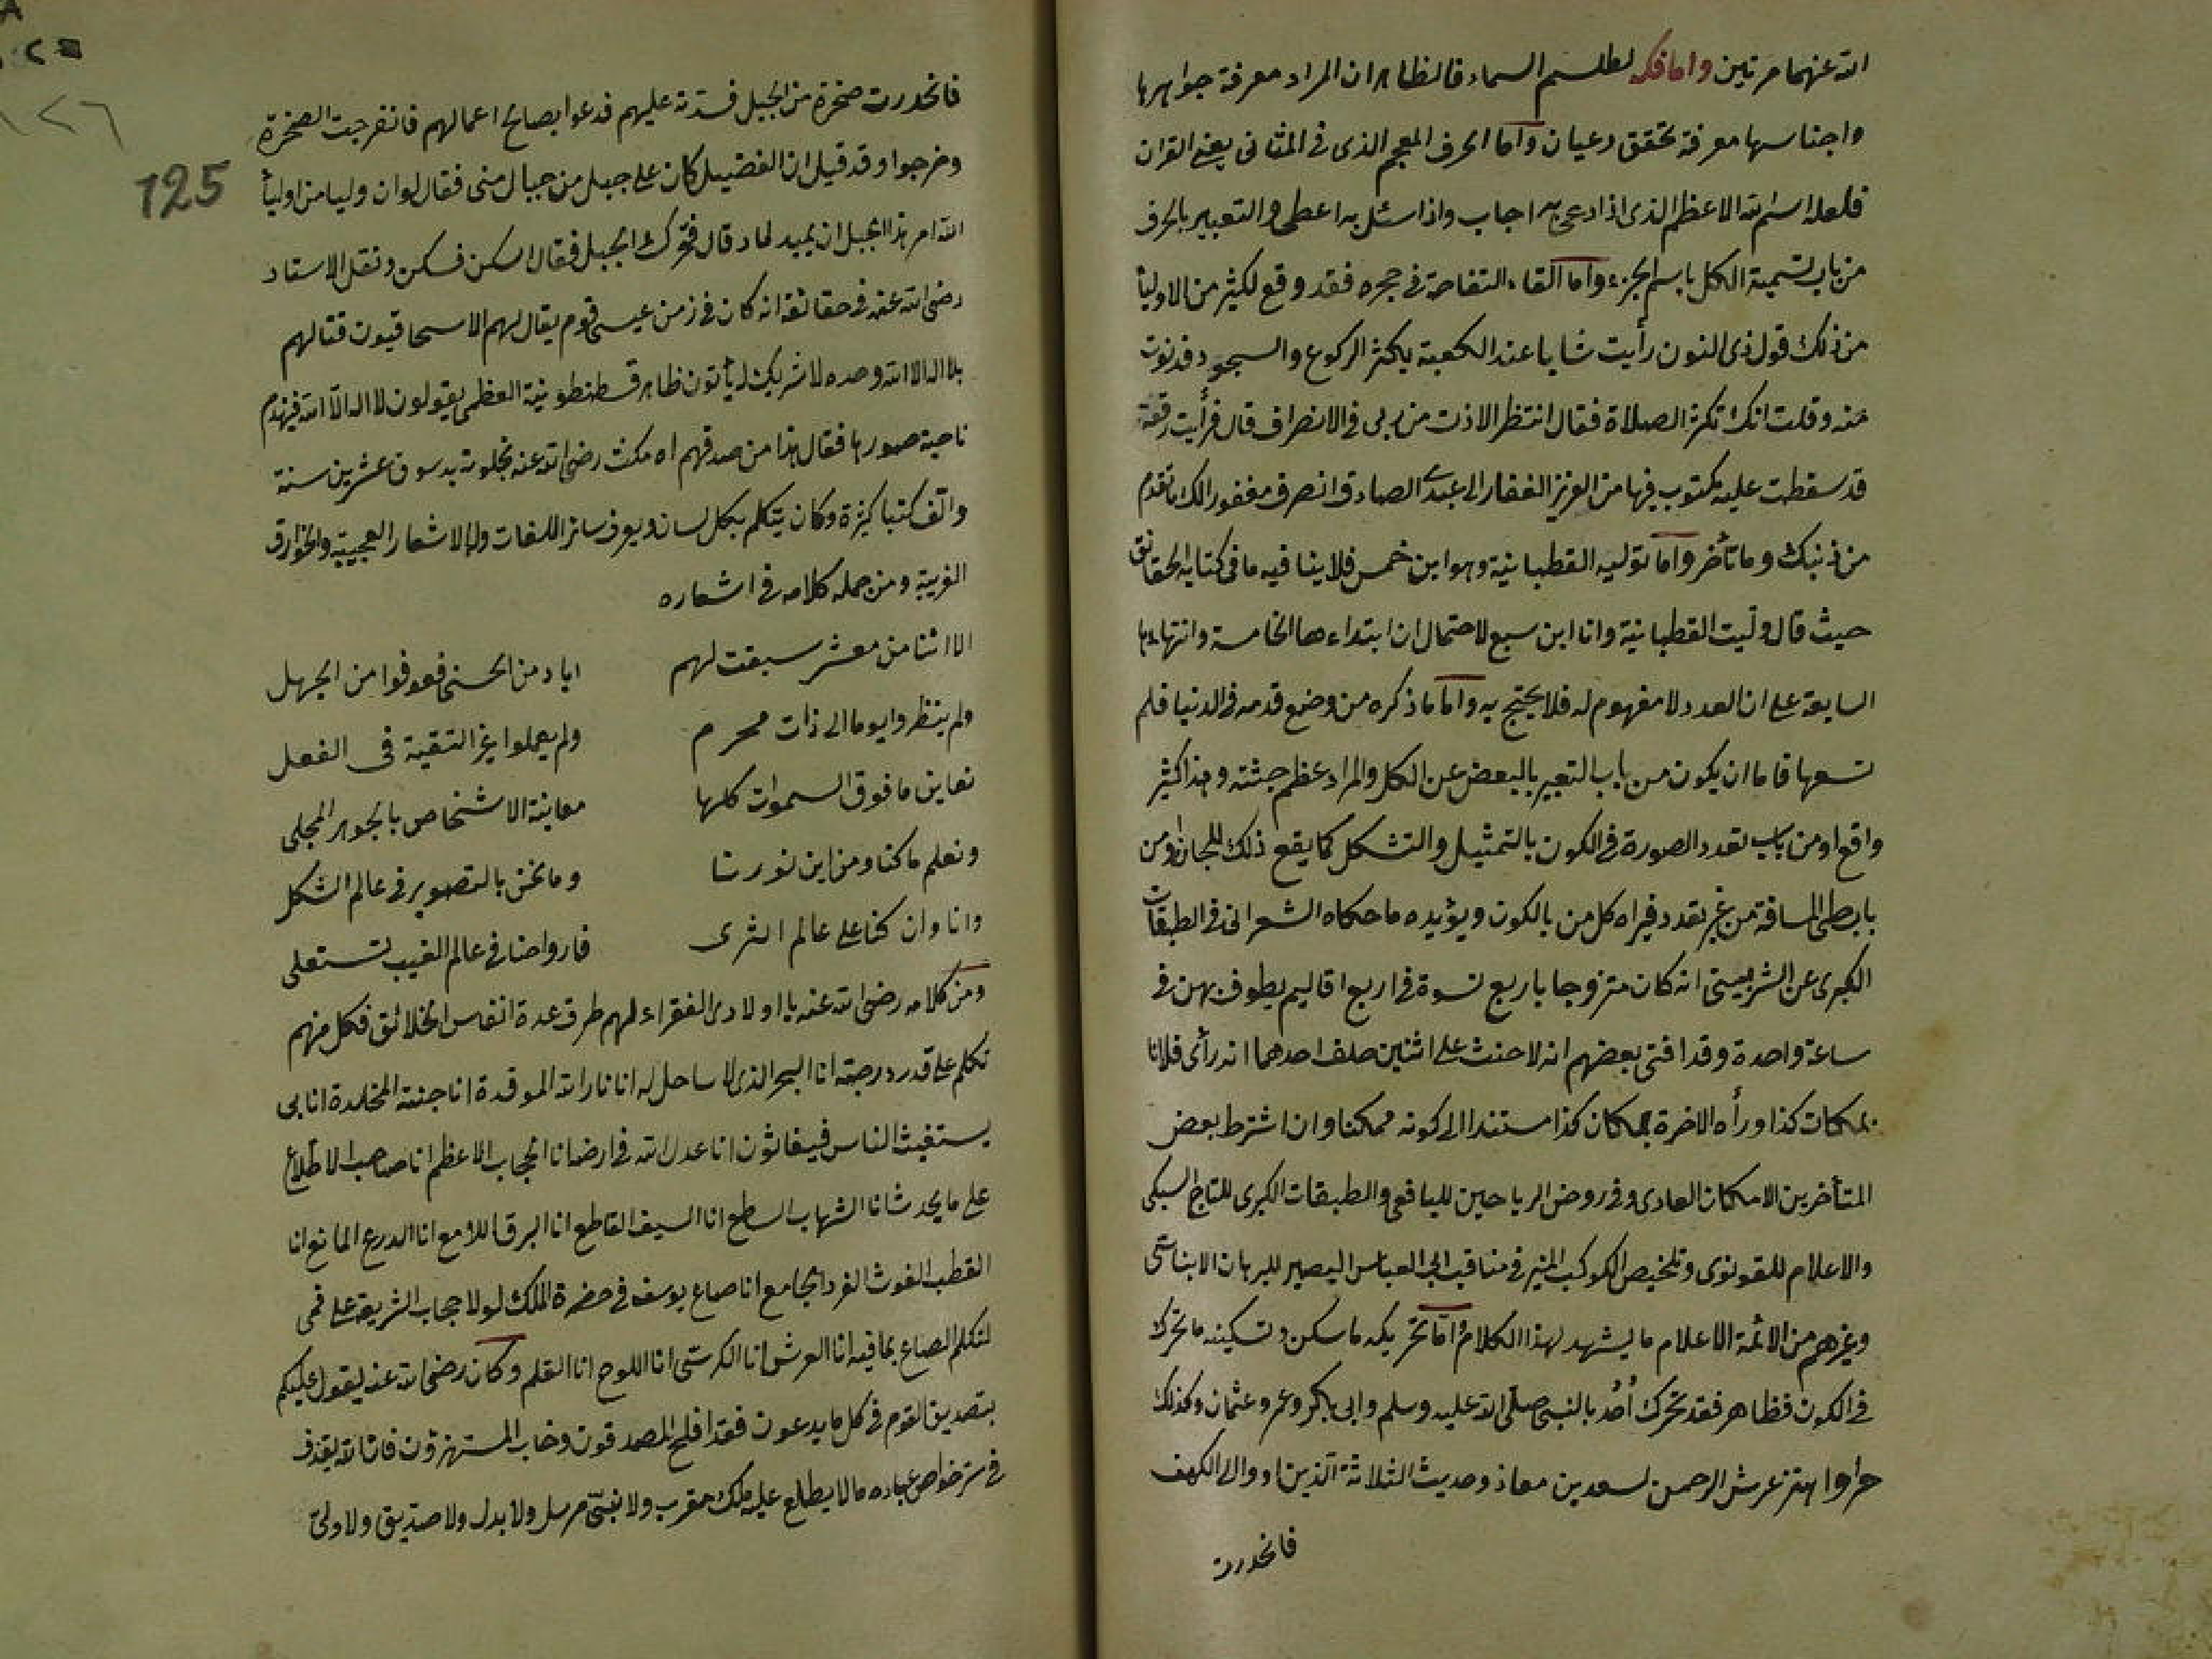 الله عنهما مرتين وأما فكه لطلسم السماء فالظاهر ان المراد معرفة جواهرها
واجناسها معرفة تحقق وعيان وأما الحرف المعجم الذى فى المثانى يعنى القران
فلعله اسم الله الاعظم الذى اذا دعى به اجاب واذا سئل به اعطى والتعبير بالحرف
من باب تسمية الكل باسم الجزء وأما القاء التفاحة فى حجره فقد وقع لكثير من الاولياء
من ذلك قول ذى النون رأيت شابا عند الكعبة يكثر الركوع والسجود فدنوت
منه وقلت انك تكثر الصلاة فقال انتظر الاذن من ربى فى الانصراف قال فرأيت رقعة
قد سقطت عليه مكتوب فيها من العزيز الغفار الى عبدى الصادق انصرف مغفورا لك ما تقدم
من ذنبك وما تأخر وأما توليه القطبانية وهو ابن خمس فلا ينافيه ما فى كتابه الحقائق
حيث قال وليت القطبانية وانا ابن سبع لاحتمال ان ابتداءها الخامسة وانتهاءها
السابعة على ان العدد لا مفهوم له فلا يحتج به وأما ما ذكره من وضع قدمه فى الدنيا فلم
تسعها فاما ان يكون من باب التعبير بالبعض عن الكل والمراد عظم جثته وهذا كثير
واقع او من باب تعدد الصورة فى الكون بالتمثيل والتشكل كما يقع ذلك للجان او من
باب طى المسافة من غير تعدد فيراه كل من بالكون ويؤيده ما حكاه الشعرانى فى الطبقات
الكبرى عن الشربينى انه كان متزوجا باربع نسوة فى اربع اقاليم يطوف بهن فى
ساعة واحدة وقد افتى بعضهم انه لا حنث على اثنين حلف احدهما انه رأى فلانا
بمكان كذا ورأه الاخر بمكان كذا مستندا الى كونه ممكنا وان اشترط بعض
المتأخرين الامكان العادى وفى روض الرياحين لليافعى والطبقات الكبرى للتاج السبكى
والاعلام للقونوى وتلخيص الكوكب المنير فى مناقب ابى العباس البصير للبرهان الابناسى
وغيرهم من الائمة الاعلام ما يشهد لهذا الكلام وأما تحريكه ما سكن وتسكينه ما تحرك
فى الكون فظاهر فقد تحرك أحد بالنبى صلى الله عليه وسلم وابى بكر وعمر وعثمان وكذلك
حرا واهتز عرش الرحمن لسعد بن معاذ وحديث الثلاثة الذين اووا الى الكهف
فانحدرت
125
١٢٦
فانحدرت صخرة من الجبل فسدته عليهم فدعوا بصالح اعمالهم فانفرجت الصخرة
وخرجوا وقد قيل ان الفضيل كان على جبل من جبال منى فقال لو ان وليا من اولياء
الله امر هذا الجبل ان يميد لماد قال فتحرك الجبل فقال اسكن فسكن ونقل الاستاد
رضى الله عنه فى حقائقه انه كان فى زمن عيسى قوم يقال لهم الاسحاقيون قتالهم
بلا اله الا الله وحده لا شريك له يأتون ظاهر قسطنطونية العظمى يقولون لا اله الا الله فيهدم
ناحية صورها فقال هذا من صدقهم اه مكث رضى الله عنه بخلوته بدسوق عشرين سنة
والف كتبا كثيرة وكان يتكلم بكل لسان ويعرف سائر اللغات وله الاشعار العجيبة والخوارق
الغريبة ومن جملة كلامه فى اشعاره
الا اننا من معشر سبقت لهم اياد من الحسنى فعوفوا من الجهل
ولم ينظروا يوما الى ذات محرم ولم يعملوا غير التقية فى الفعل
نعاين ما فوق السموات كلها معاينة الاشخاص بالجوهر المجلى
ونعلم ما كنا ومن اين نورنا وما نحن بالتصوير فى عالم الشكل
وانا وان كنا على عالم الثرى فارواحنا فى عالم الغيب تستعلى
ومن كلامه رضى الله عنه يا اولادى الفقراء لهم طرق عدة انفس الخلائق فكل منهم
تكلم على قدر درجته انا البحر الذى لا ساحل له انا نار الله الموقدة انا جنته المخلدة انا بى
يستغيث الناس فيغاثون انا عدل الله فى ارضه انا الحجاب الاعظم انا صاحب الاطلاع
على ما يحدث انا الشهاب الساطع انا السيف القاطع انا البرق اللامع انا الدرع المانع انا
القطب الغوث الفرد الجامع انا صاع يوسف فى حضرة الملك لولا حجاب الشريعة على فمى
لتكلم الصاع بما فيه انا العرش انا الكرسى انا اللوح انا القلم وكان رضى الله عنه يقول عليكم
بتصديق القوم فى كل ما يدعون فقد افلح المصدقون وخاب المستهزؤن فان الله يقذف
فى سر خواص عباده ما لا يطلع عليه ملك مقرب ولا نبى مرسل ولا بدل ولا صديق ولا ولى